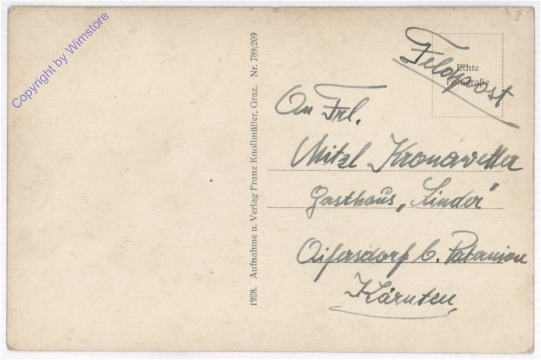 Copyright by Wimstore
1928. Aufnahme u. Verlag Franz Knollmüller, Graz. Nr. 789/209
Echte
Feldpost
An Frl.
Mitzl Kronawetter
Gasthaus „Linder"
Aifersdorf b. Paternion
Kärnten